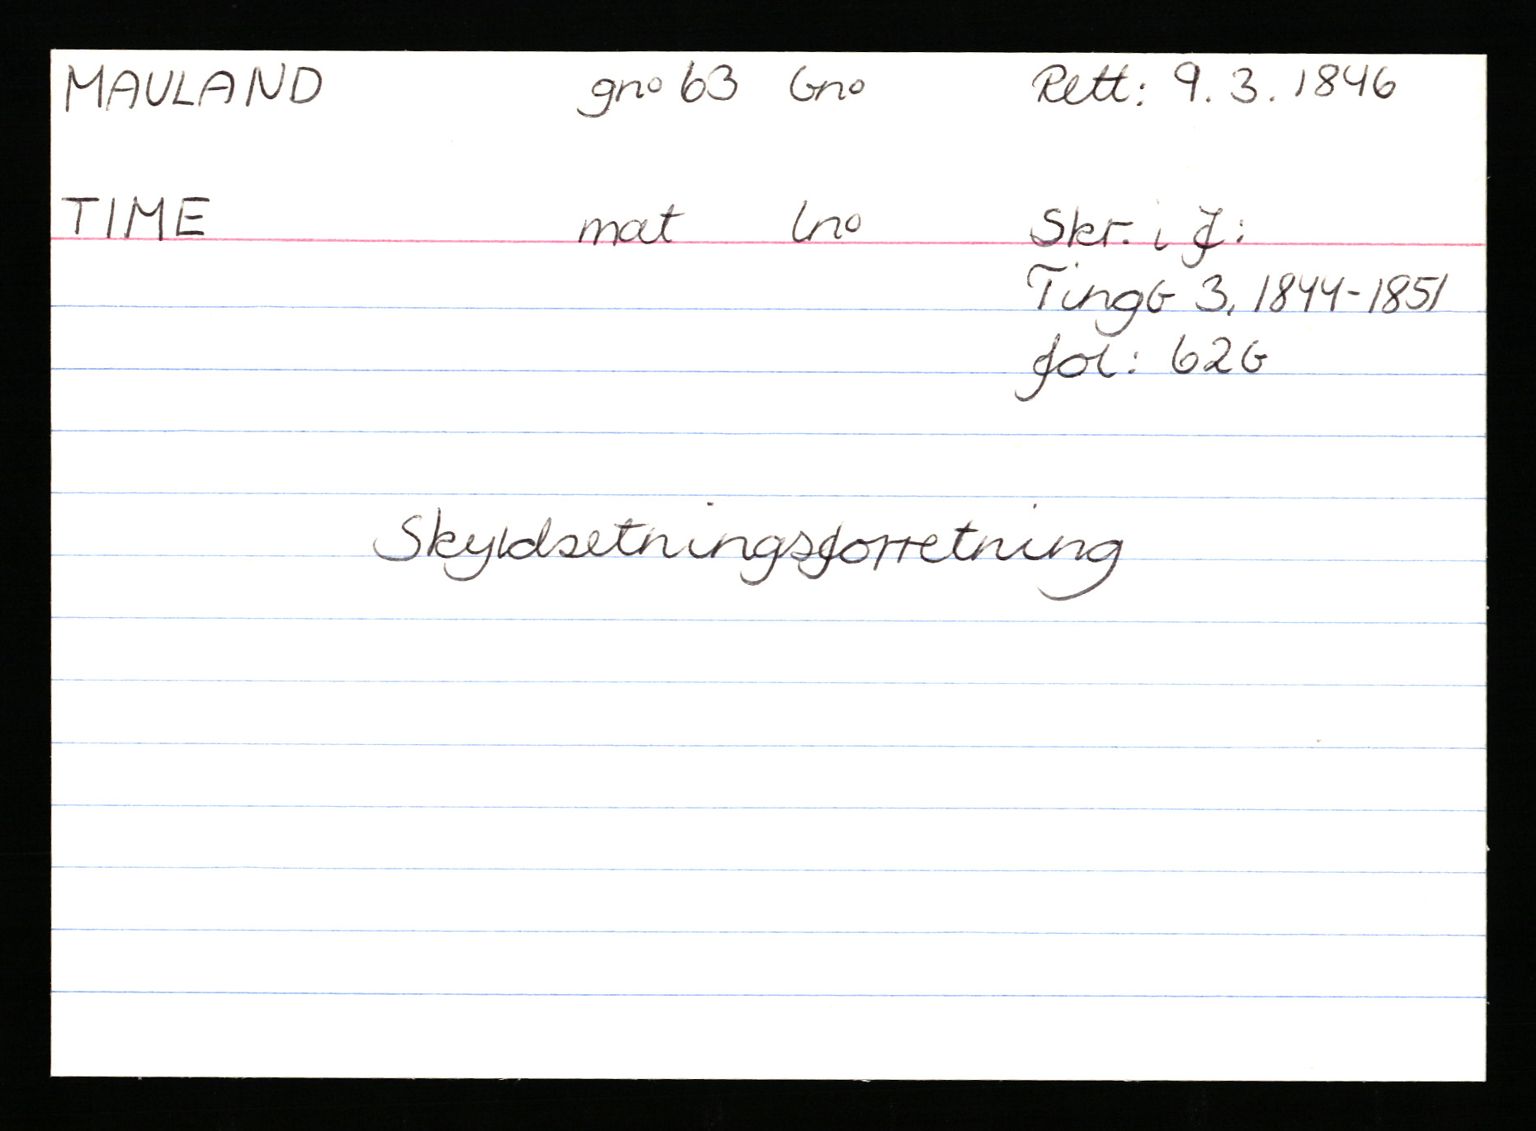 MAULAND gno 63 bno Rett: 9.3.1846
TIME mat lno Skr. i f:
Tingb 3, 1844-1851
fol: 62b
Skyldsetningsforretning